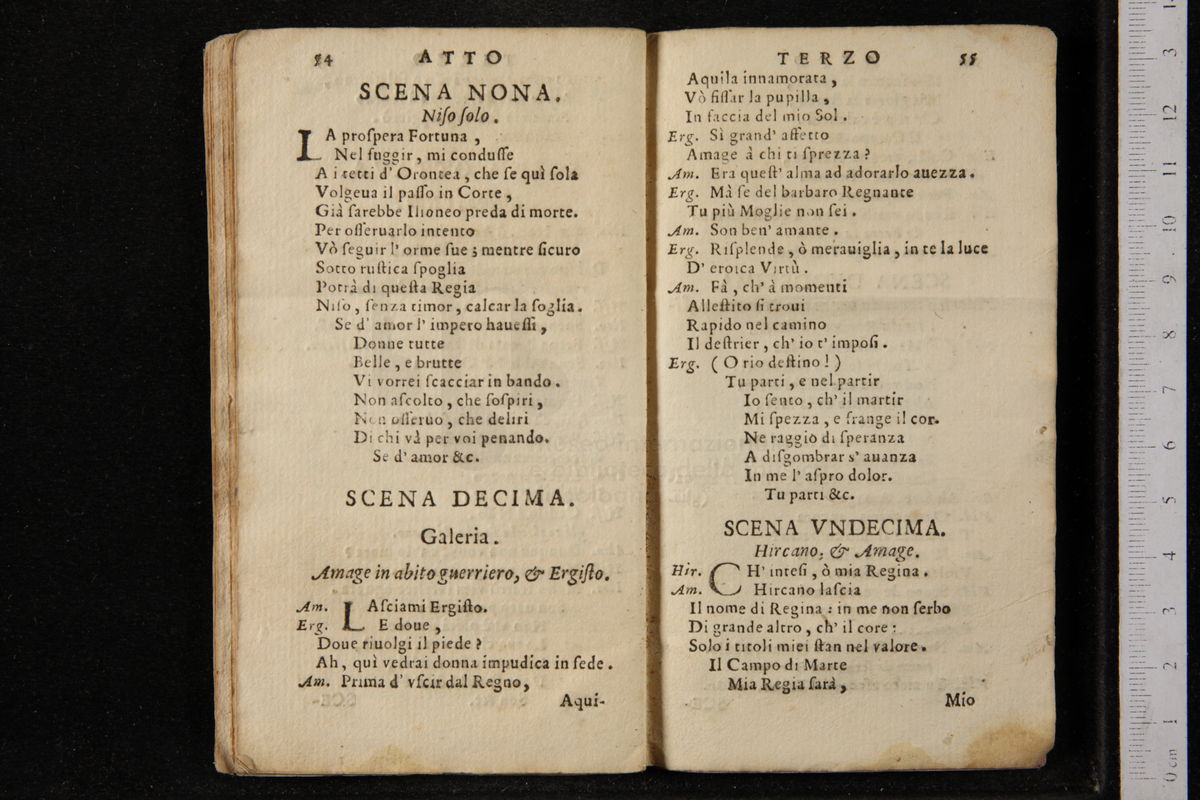 54 ATTO
SCENA NONA.
Niſo ſolo.
LA proſpera Fortuna,
Nel fuggir, mi conduſſe
A i tetti d' Orontea, che ſe quì ſola
Volgeua il paſſo in Corte,
Già ſarebbe Ilioneo preda di morte.
Per oſſeruarlo intento
Vò ſeguir l' orme ſue; mentre ſicuro
Sotto ruſtica ſpoglia
Potrà di queſta Regia
Niſo, ſenza timor, calcar la ſoglia.
Se d' amor l' impero haueſſi,
Donne tutte
Belle, e brutte
Vi vorrei ſcacciar in bando.
Non aſcolto, che ſoſpiri,
Non oſſeruo, che deliri
Di chi và per voi penando.
Se d' amor &c.
SCENA DECIMA.
Galeria.
Amage in abito guerriero, & Ergiſto.
Am. LAſciami Ergiſto.
Erg. E doue,
Doue riuolgi il piede?
Ah, quì vedrai donna impudica in ſede.
Am. Prima d' vſcir dal Regno,
Aqui-
TERZO 55
Aquila innamorata,
Vò fiſſar la pupilla,
In faccia del mio Sol.
Erg. Sì grand' affetto
Amage à chi ti ſprezza?
Am. Era queſt' alma ad adorarlo auezza.
Erg. Mà ſe del barbaro Regnante
Tu più Moglie non ſei.
Am. Son ben' amante.
Erg. Riſplende, ò merauiglia, in te la luce
D' eroica Virtù.
Am. Fà, ch' à momenti
Alleſtito ſi troui
Rapido nel camino
Il deſtrier, ch' io t' impoſi.
Erg. (O rio deſtino!)
Tu parti, e nel partir
Io ſento, ch' il martir
Mi ſpezza, e frange il cor.
Ne raggio di ſperanza
A diſgombrar s' auanza
In me l' aſpro dolor.
Tu parti &c.
SCENA VNDECIMA.
Hircano, & Amage.
Hir. CH' inteſi, ò mia Regina.
Am. Hircano laſcia
Il nome di Regina: in me non ſerbo
Di grande altro, ch' il core:
Solo i titoli miei ſtan nel valore.
Il Campo di Marte
Mia Regia ſarà,
Mio
0 cm 1 2 3 4 5 6 7 8 9 10 11 12 3